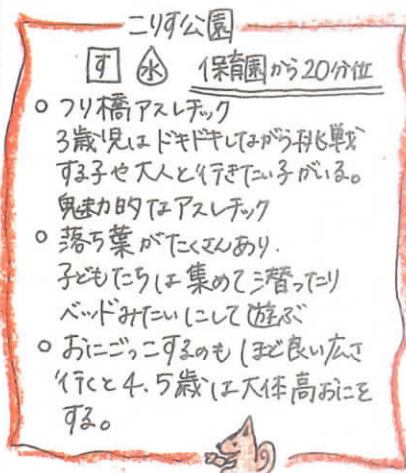 こりす公園
す 水 保育園から20分位
○ フリ橋アスレチック
3歳児はドキドキしながら挑戦
する子や大人と行きたい子がいる。
魅力的なアスレチック
○ 落ち葉がたくさんあり、
子どもたちは集めて潜ったり
ベッドみたいにして遊ぶ
○ おにごっこするのもほど良い広さ
行くと4、5歳は大体高おにを
する。